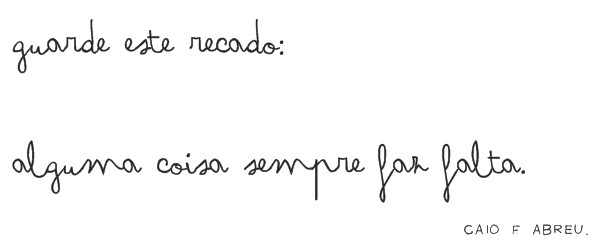 guarde este recado:
alguma coisa sempre faz falta.
CAIO F ABREU.